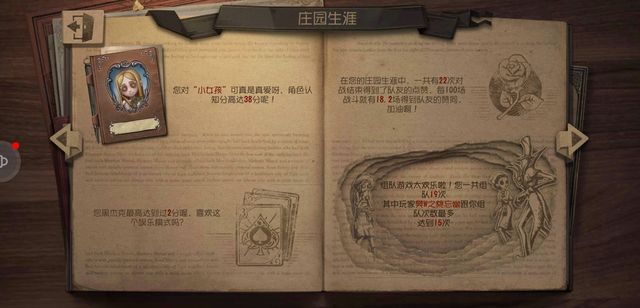 庄园生涯
您对“小女孩”可真是真爱呀，角色认
知分高达38分呢！
您黑杰克最高达到过2分喔，喜欢这
个娱乐模式吗？
在您的庄园生涯中，一共有22次对
战结束得到了队友的点赞，每100场
战斗就有18.2场得到队友的赞同，
加油啊！
组队游戏太欢乐啦！您一共组
队19次
跟你组
队次数最多
达到15次